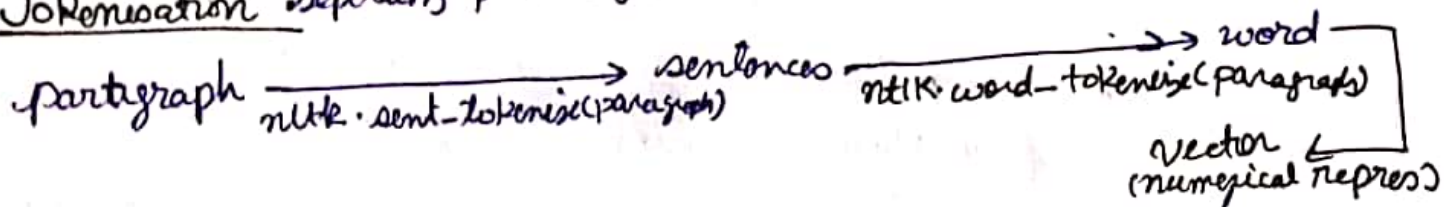 Tokenisation
paragraph → sentences → word
nltk.sent_tokenize(paragraph) nltk.word_tokenize(paragraph)
vector
(numerical repres)